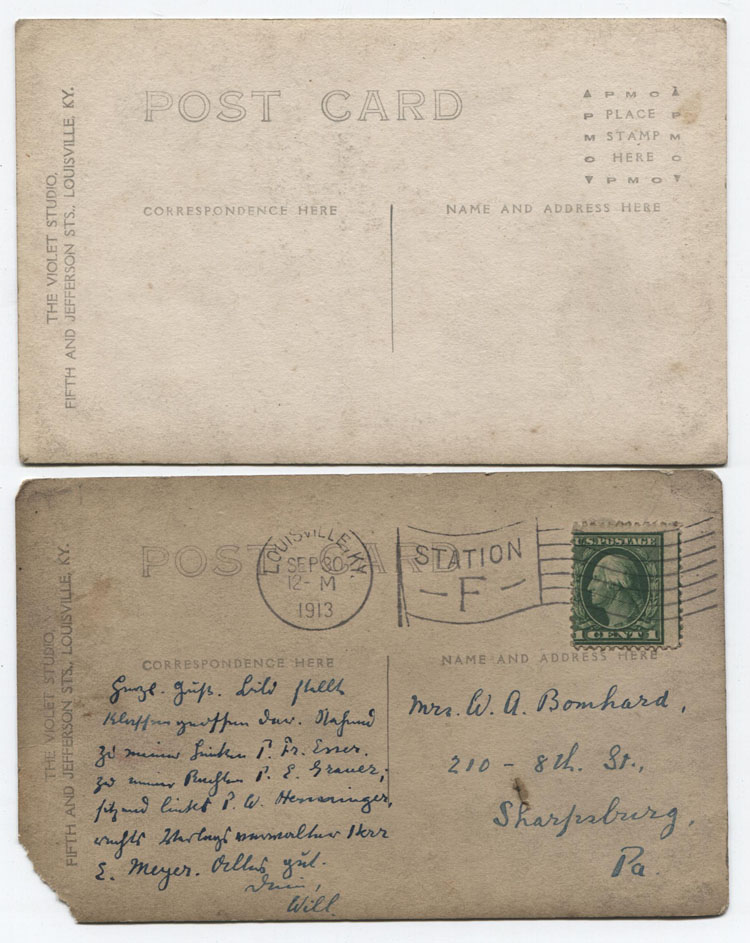 POST CARD
▲ P M C ▲
P PLACE P
M STAMP M
O HERE C
▼ P M C ▼
CORRESPONDENCE HERE
NAME AND ADDRESS HERE
THE VIOLET STUDIO,
FIFTH AND JEFFERSON STS., LOUISVILLE, KY.
POST CARD
LOUISVILLE, KY.
SEP 30
12- M
1913
STATION
- F -
U.S. POSTAGE
1 CENT 1
CORRESPONDENCE HERE
NAME AND ADDRESS HERE
THE VIOLET STUDIO,
FIFTH AND JEFFERSON STS., LOUISVILLE, KY.
Herzl. Gruß. Bild stellt
Klassengenossen dar. Stehend
zu meiner Linken P. Fr. Esser.
zu meiner Rechten P. E. Grauer;
sitzend links P. W.
rechts Verlagsverwalter Herr
E. Meyer. Alles gut.
Dein,
Will.
Mrs. W. A. Bomhard,
210 - 8th. St.,
Sharpsburg,
Pa.